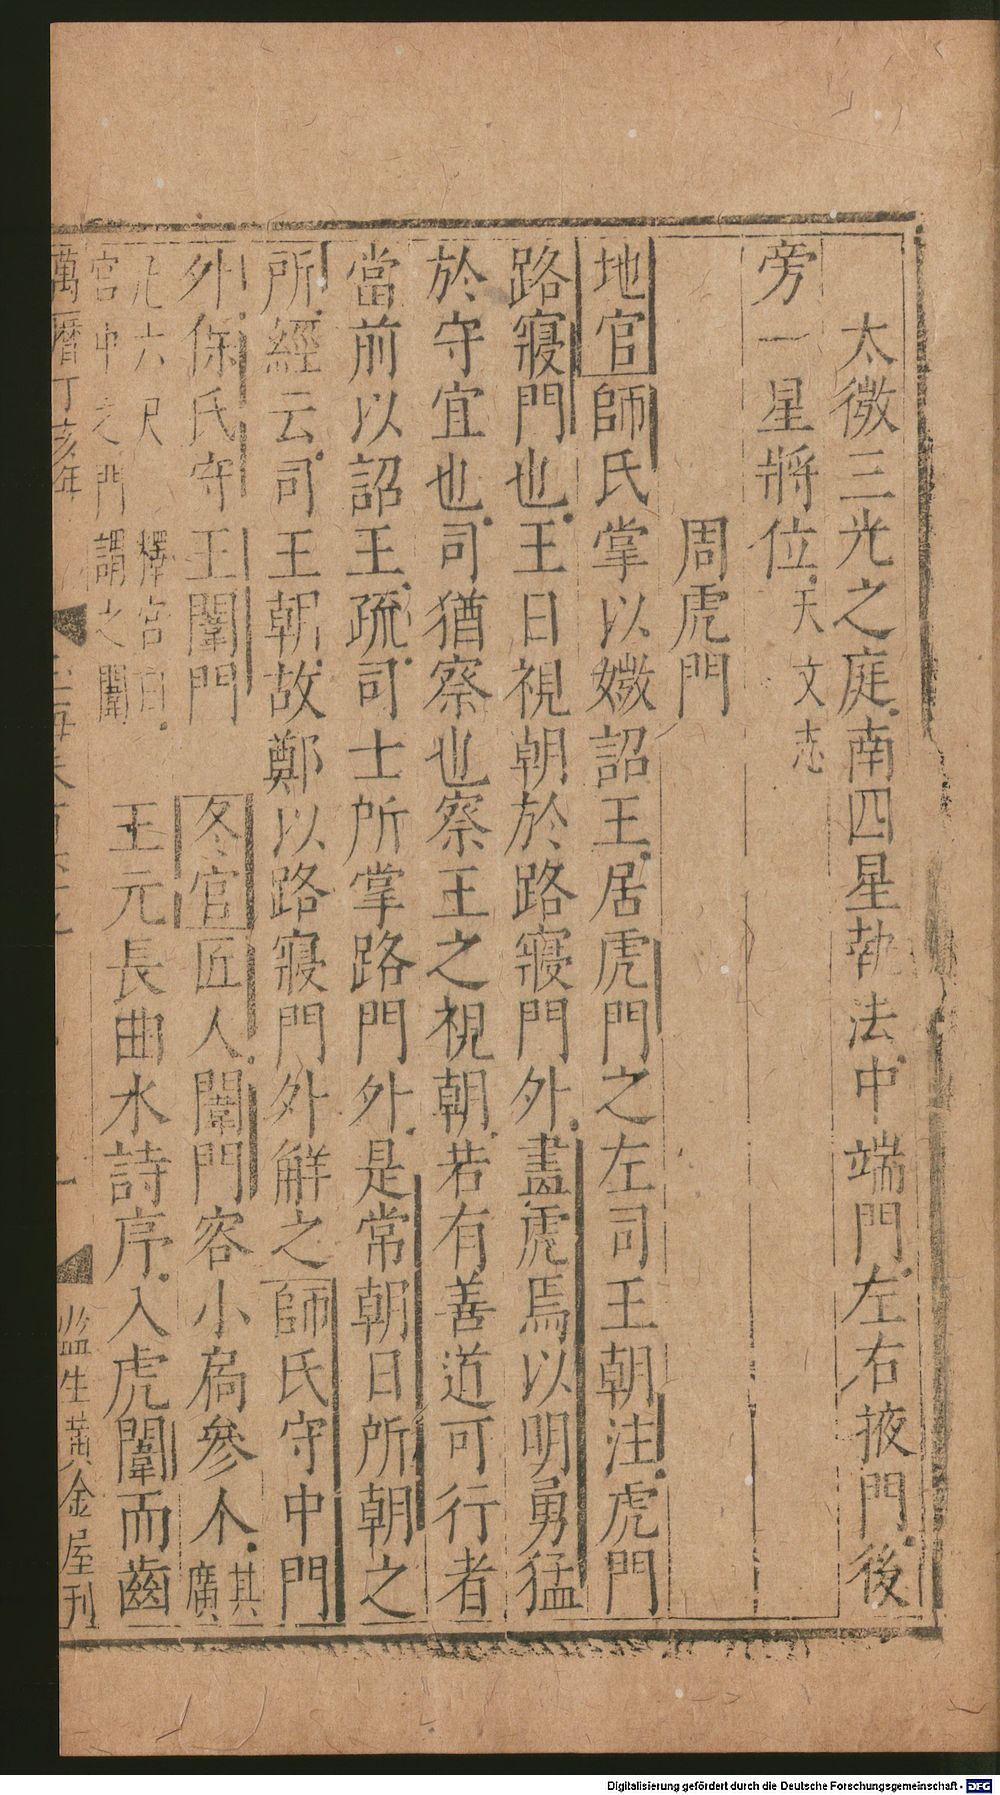 太微三光之庭南四星執法中端門左右掖門後
旁一星將位天文志
周虎門
地官師氏掌以媺詔王居虎門之左司王朝注虎門
路寢門也王日視朝於路寢門外畫虎焉以明勇猛
於守宜也司猶察也察王之視朝若有善道可行者
當前以詔王疏司士所掌路門外是常朝日所朝之
所經云司王朝故鄭以路寢門外解之師氏守中門
外保氏守王闈門 冬官匠人闈門容小扃參个其廣
九六尺 釋宮曰
宮中之門謂之闈
王元長曲水詩序入虎闈而齒
萬曆丁亥年
監生黃金屋刊
Digitalisierung gefördert durch die Deutsche Forschungsgemeinschaft - DFG